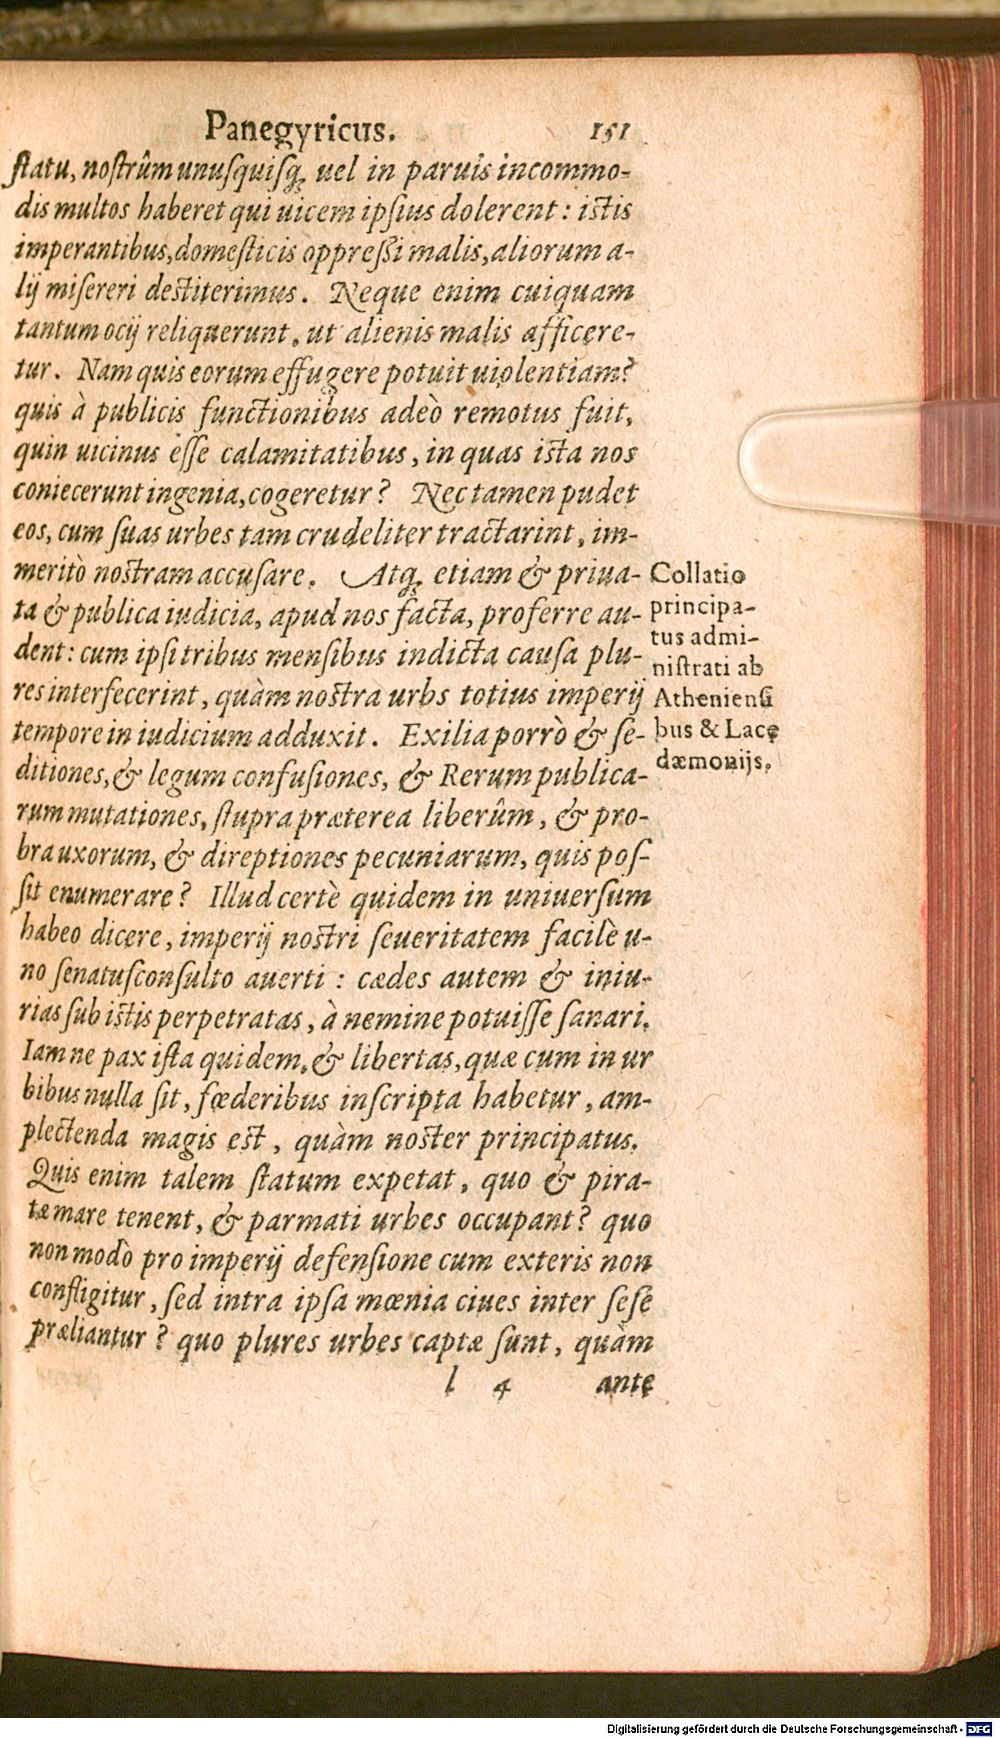 Panegyricus. 151
ſtatu, noſtrûm unuſquiſq; uel in paruis incommo-
dis multos haberet qui uicem ipſius dolerent: iſtis
imperantibus, domeſticis oppreſſi malis, aliorum a-
lij miſereri deſtiterimus. Neque enim cuiquam
tantum ocij reliquerunt, ut alienis malis afficere-
tur. Nam quis eorum effugere potuit uiolentiam?
quis à publicis functionibus adeò remotus fuit,
quin uicinus eſſe calamitatibus, in quas iſta nos
coniecerunt ingenia, cogeretur? Nec tamen pudet
eos, cum ſuas urbes tam crudeliter tractarint, im-
meritò noſtram accuſare. Atq; etiam & priua-
ta & publica iudicia, apud nos facta, proferre au-
dent: cum ipſi tribus menſibus indicta cauſa plu-
res interfecerint, quàm noſtra urbs totius imperij
tempore in iudicium adduxit. Exilia porrò & ſe-
ditiones, & legum confuſiones, & Rerum publica-
rum mutationes, ſtupra præterea liberûm, & pro-
bra uxorum, & direptiones pecuniarum, quis poſ-
ſit enumerare? Illud certè quidem in uniuerſum
habeo dicere, imperij noſtri ſeueritatem facilè u-
no ſenatuſconſulto auerti: cædes autem & iniu-
rias ſub iſtis perpetratas, à nemine potuiſſe ſanari.
Iamne pax iſta quidem, & libertas, quæ cum in ur
bibus nulla ſit, fœderibus inſcripta habetur, am-
plectenda magis eſt, quàm noſter principatus.
Quis enim talem ſtatum expetat, quo & pira-
tæ mare tenent, & parmati urbes occupant? quo
non modò pro imperij defenſione cum exteris non
confligitur, ſed intra ipſa mœnia ciues inter ſeſe
præliantur? quo plures urbes captæ ſunt, quàm
l 4 ante
Collatio
principa-
tus admi-
niſtrati ab
Athenienſi
bus & Lacę
dæmonijs.
Digitalisierung gefördert durch die Deutsche Forschungsgemeinschaft - DFG